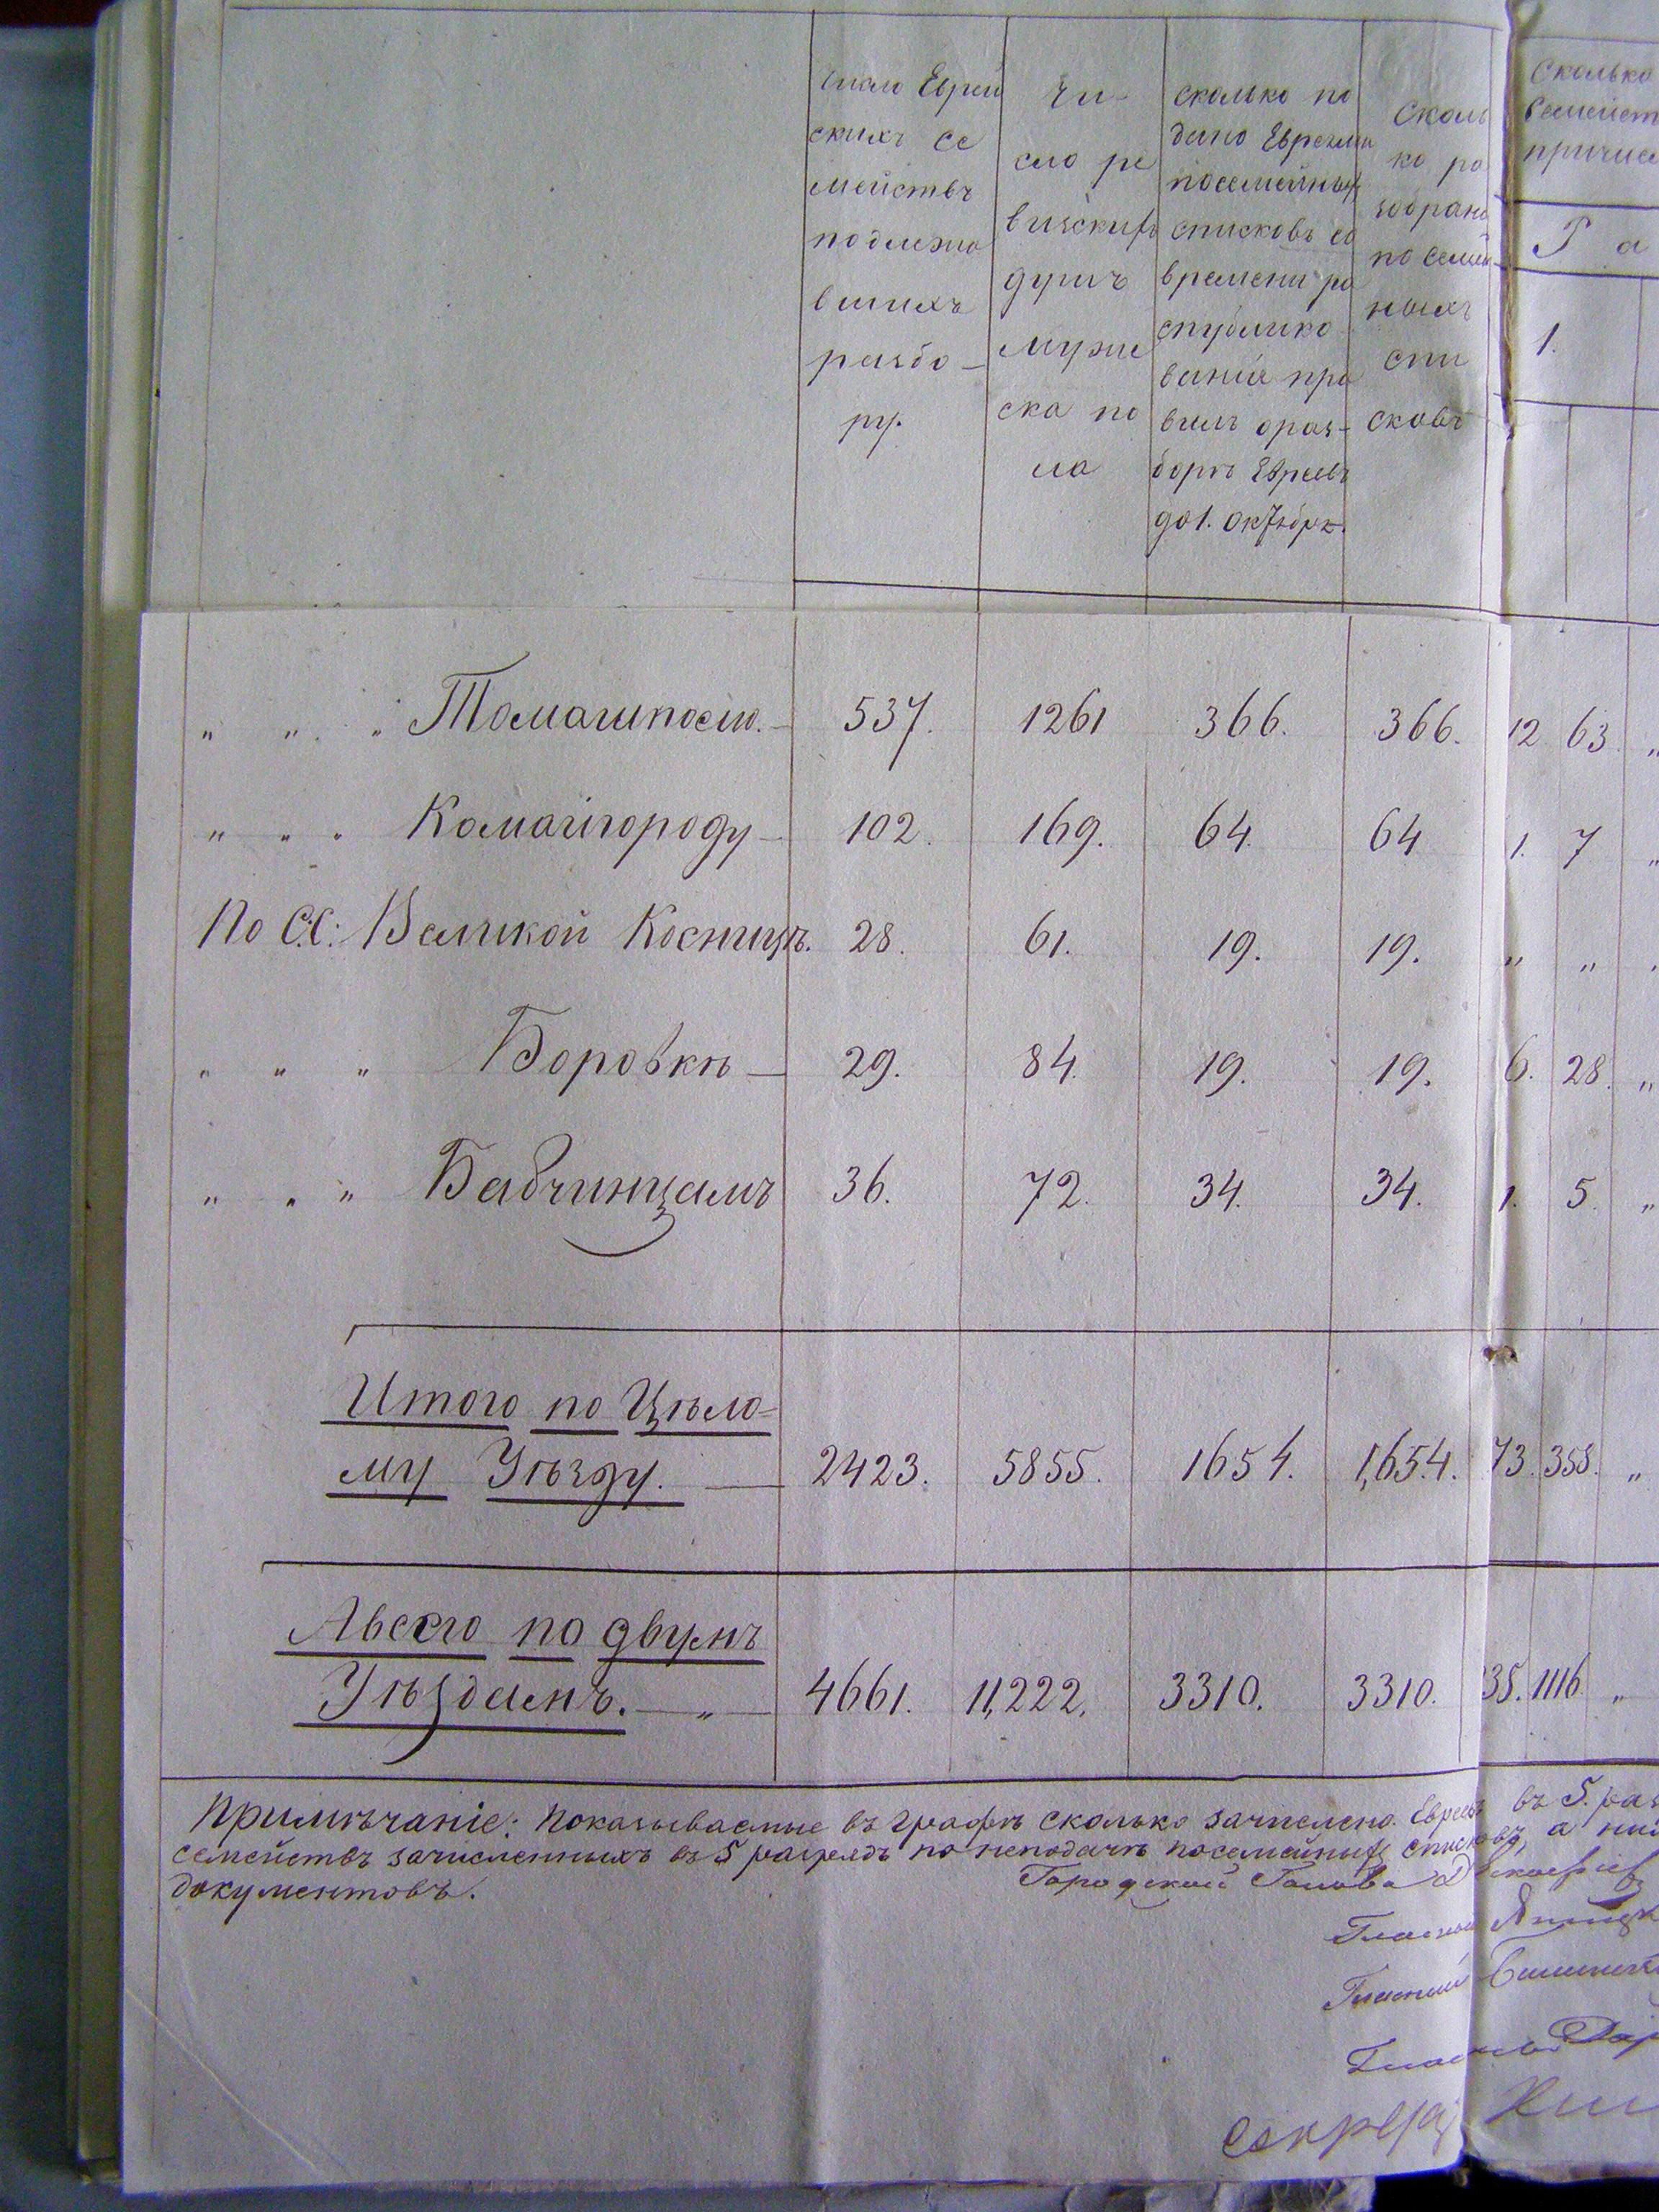 число Еврей
скихъ се
мействъ
подлежа
вшихъ
разбо-
ру.
Чи-
сло ре
визскихъ
душъ
муже
ска по
ла
сколько по
дано Евреями
посемейныхъ
списковъ со
времени ра
спублико
ванія пра
вилъ ораз-
борѣ Евреевъ
до 1. октября.
Сколь
ко ра
зобрано
посемей-
ныхъ
спи
сковъ
Сколько
Семейст
причис
Р а
1.
" " " Томашполю. - 537. 1261 366. 366. 12 63 "
" " " Комайгороду - 102. 169. 64. 64 1. 7 "
По С.С: Великой Косницѣ. 28. 61. 19. 19. " " "
" " " Боровкѣ — 29. 84. 19. 19. 6. 28. "
" " " Бабчинцамъ 36. 72. 34. 34. 1. 5. "
Итого по Цѣло=
му Уѣзду. — 2423. 5855. 1654. 1,654. 73. 358. "
Авсего по двумъ
Уѣздамъ. — " — 4661. 11,222. 3310. 3310. 35. 1116. "
Примѣчаніе: Показываемые въ графѣ сколько зачислено Евреевъ въ 5. раз
семействъ зачисленныхъ въ 5 разрядъ по неподачѣ посемейныхъ списковъ, а
документовъ.
Городской Голова
Гласный
Гласный
Гласный
Секрет